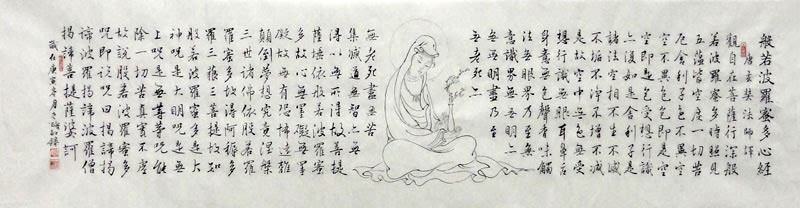 般若波羅蜜多心經
唐玄奘法師譯
觀自在菩薩行深般
若波羅蜜多時照見
五蘊皆空度一切苦
厄舍利子色不異空
空不異色色即是空
空即是色受想行識
亦復如是舍利子是
諸法空相不生不滅
不垢不淨不增不減
是故空中無色無受
想行識無眼耳鼻舌
身意無色聲香味觸
法無眼界乃至無
意識界無無明亦
無無明盡乃至
無老死亦
無老死盡無苦
集滅道無智亦無
得以無所得故菩提
薩埵依般若波羅蜜
多故心無罣礙無罣
礙故無有恐怖遠離
顛倒夢想究竟涅槃
三世諸佛依般若波
羅蜜多故得阿耨多
羅三藐三菩提故知
般若波羅蜜多是大
神咒是大明咒是無
上咒是無等等咒能
除一切苦真實不虛
故說般若波羅蜜多
咒即說咒曰揭諦揭
諦波羅揭諦波羅僧
揭諦菩提薩婆訶
歲在庚寅冬月